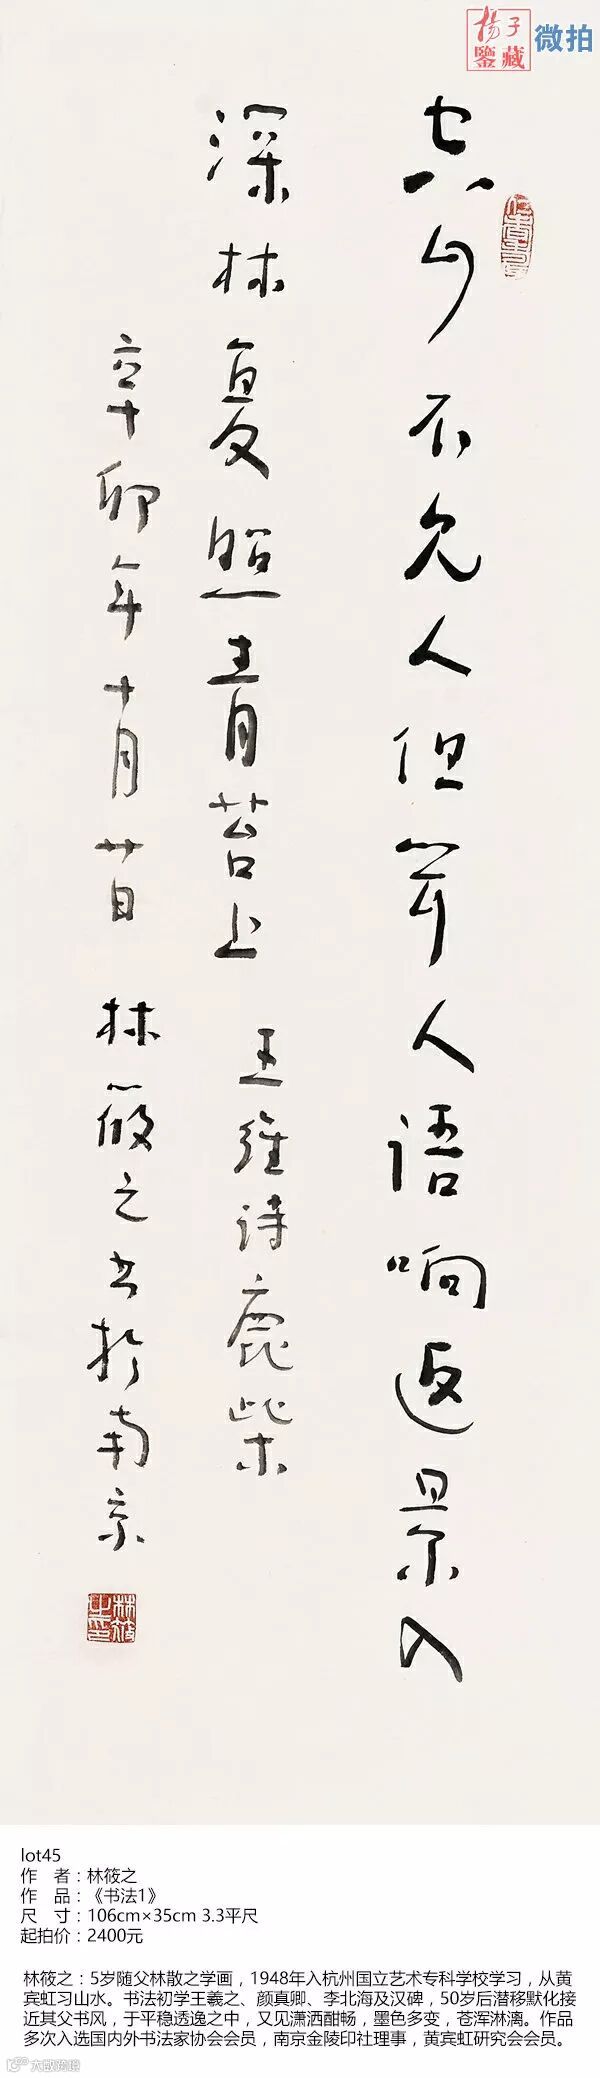 杨子
鉴藏
微拍
空山不见人但闻人语响返景入
深林复照青苔上 王维诗鹿柴
辛卯年十月廿日 林筱之书於南京
林筱之印
lot45
作 者：林筱之
作 品：《书法1》
尺 寸：106cm×35cm 3.3平尺
起拍价：2400元
林筱之：5岁随父林散之学画，1948年入杭州国立艺术专科学校学习，从黄
宾虹习山水。书法初学王羲之、颜真卿、李北海及汉碑，50岁后潜移默化接
近其父书风，于平稳透逸之中，又见潇洒酣畅，墨色多变，苍浑淋漓。作品
多次入选国内外书法家协会会员，南京金陵印社理事，黄宾虹研究会会员。
大歐跨境